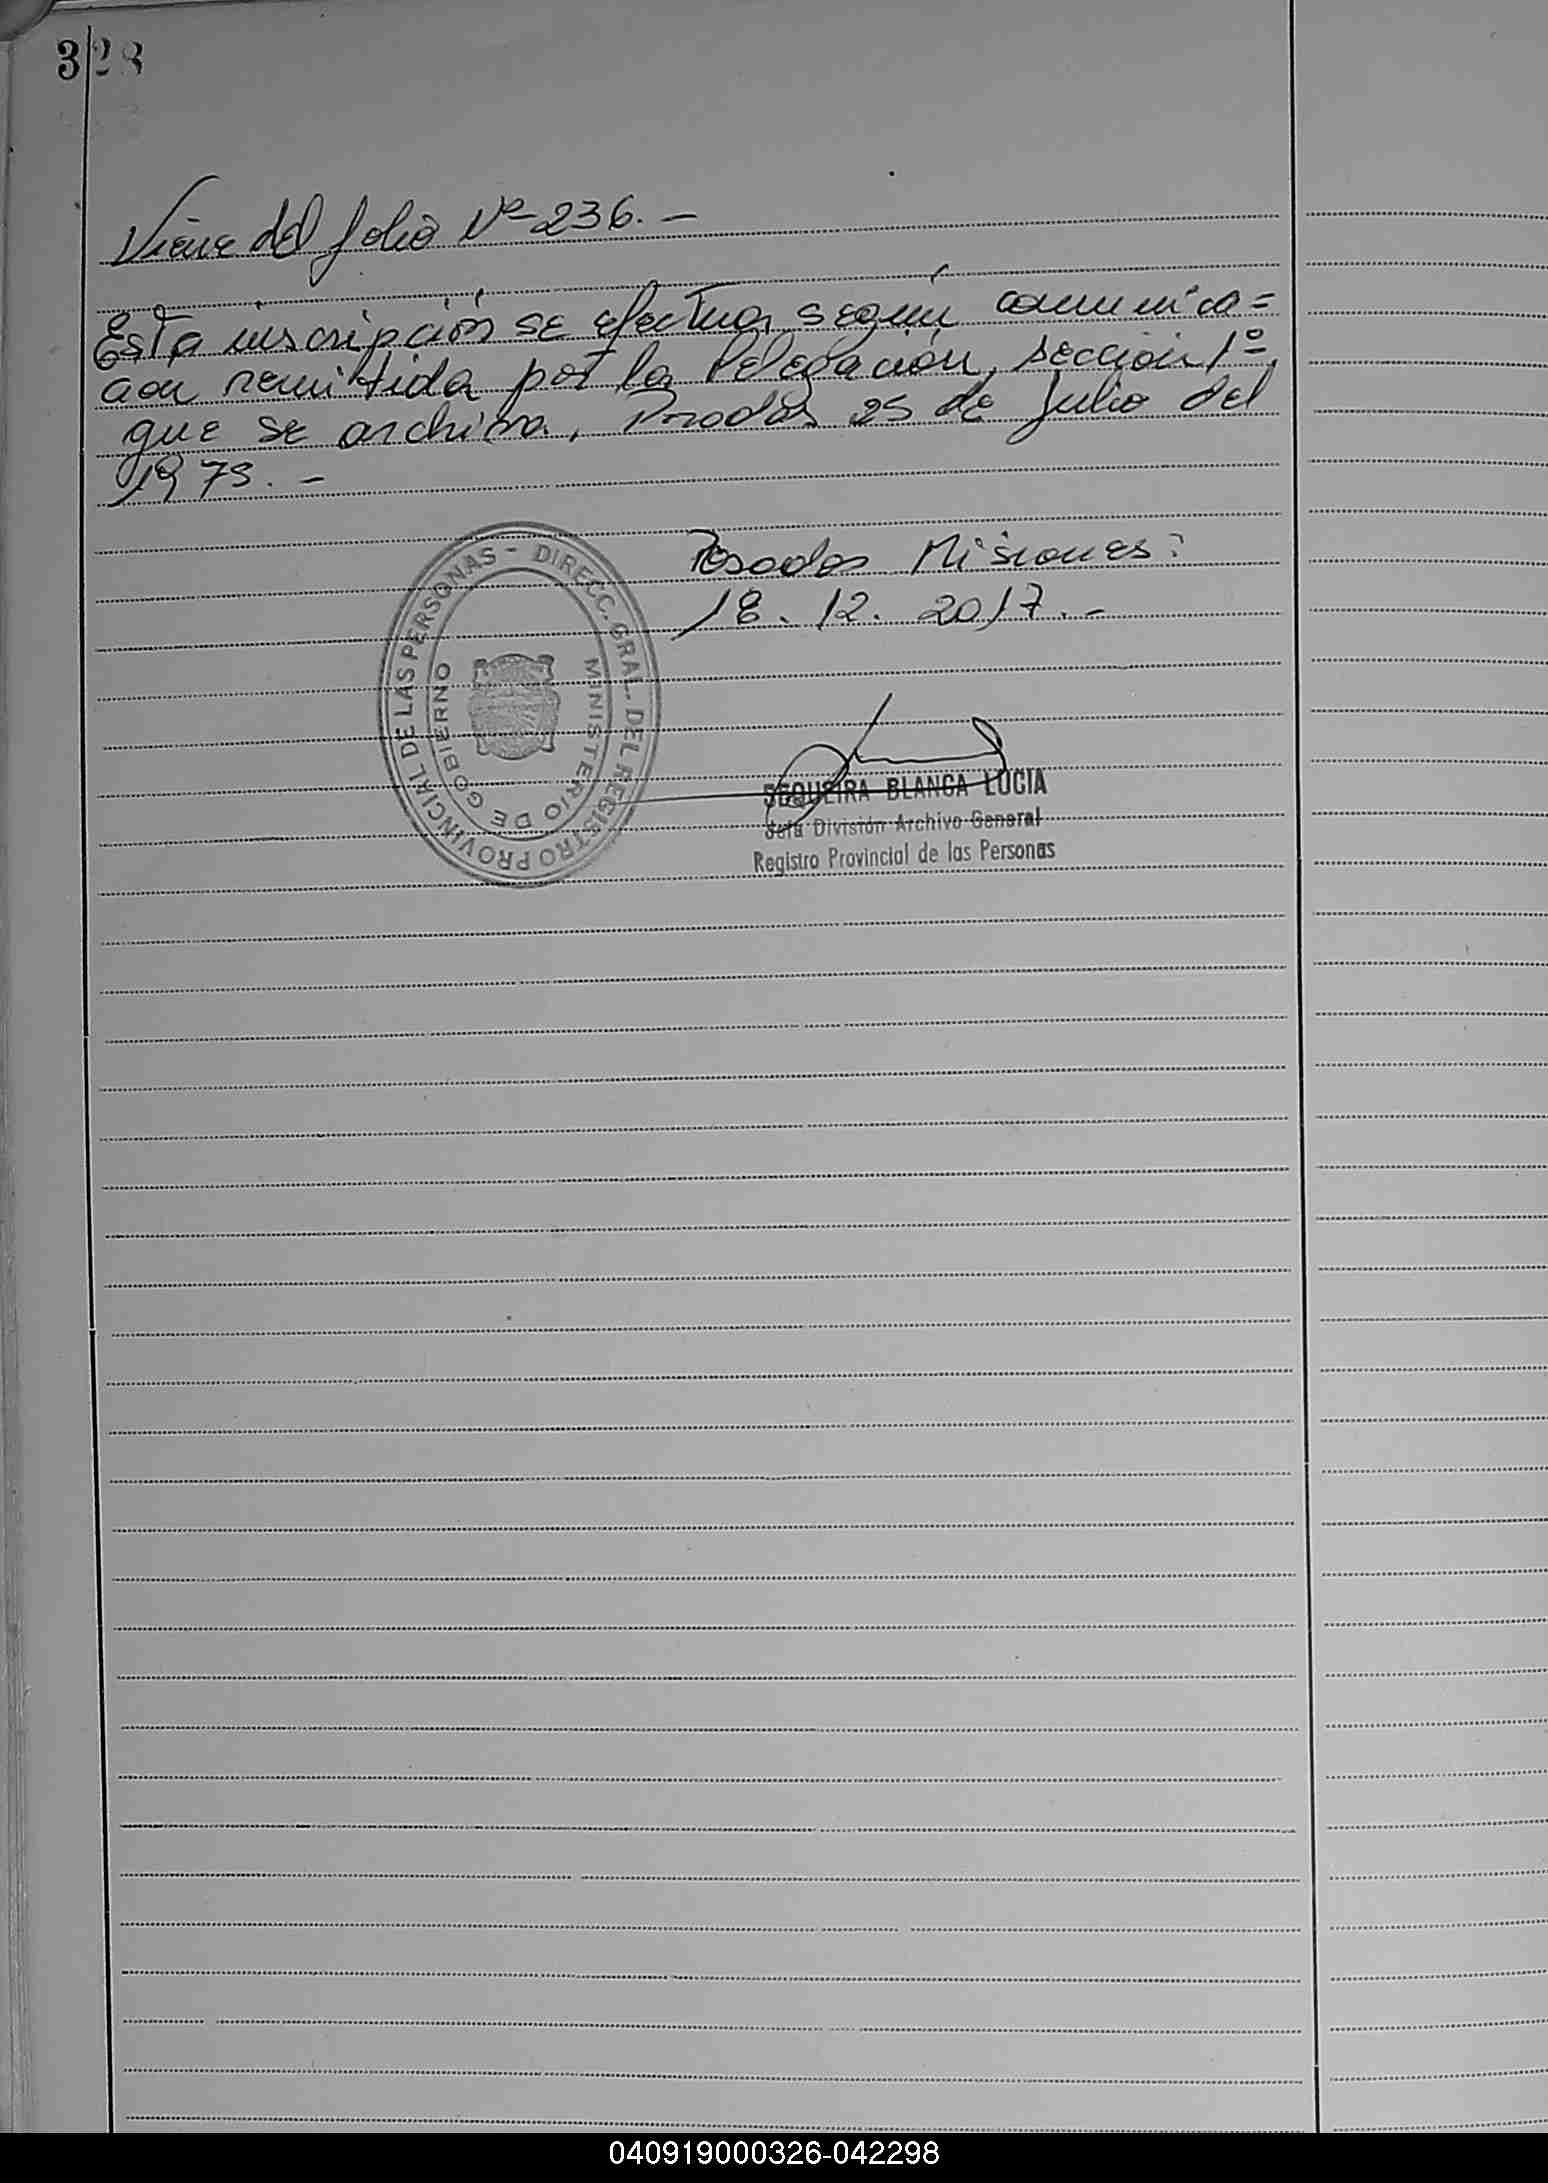 328
Viene del folio Nº 236. -
Esta inscripción se efectua según comunica=
cion remitida por la Delegación, sección 1º,
que se archiva, Posadas 25 de Julio del
1973. -
Posadas Misiones:
18. 12. 2017. -
DIRECC. GRAL. DEL REGISTRO PROVINCIAL DE LAS PERSONAS -
MINISTERIO DE GOBIERNO
SEQUEIRA BLANCA LUCIA
Jefa División Archivo General
Registro Provincial de las Personas
040919000326-042298